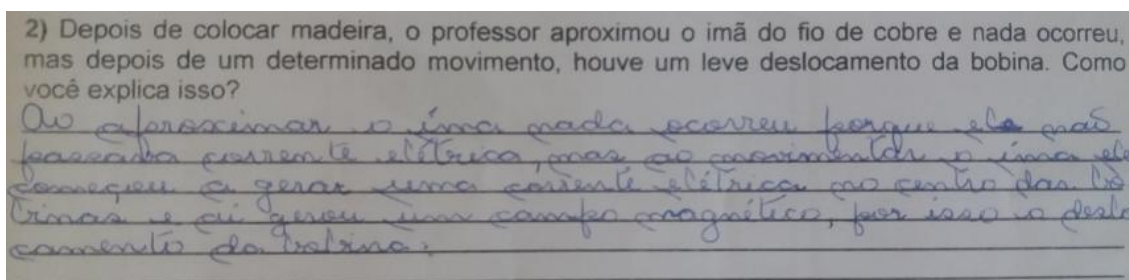 2) Depois de colocar madeira, o professor aproximou o imã do fio de cobre e nada ocorreu,
mas depois de um determinado movimento, houve um leve deslocamento da bobina. Como
você explica isso?
Ao aproximar o íma nada ocorreu porque ele não
passava corrente elétrica, mas ao movimentar o íma ele
começou a gerar uma corrente elétrica no centro das bo
binas e ai gerou um campo magnético, por isso o deslo
camento da bobina.